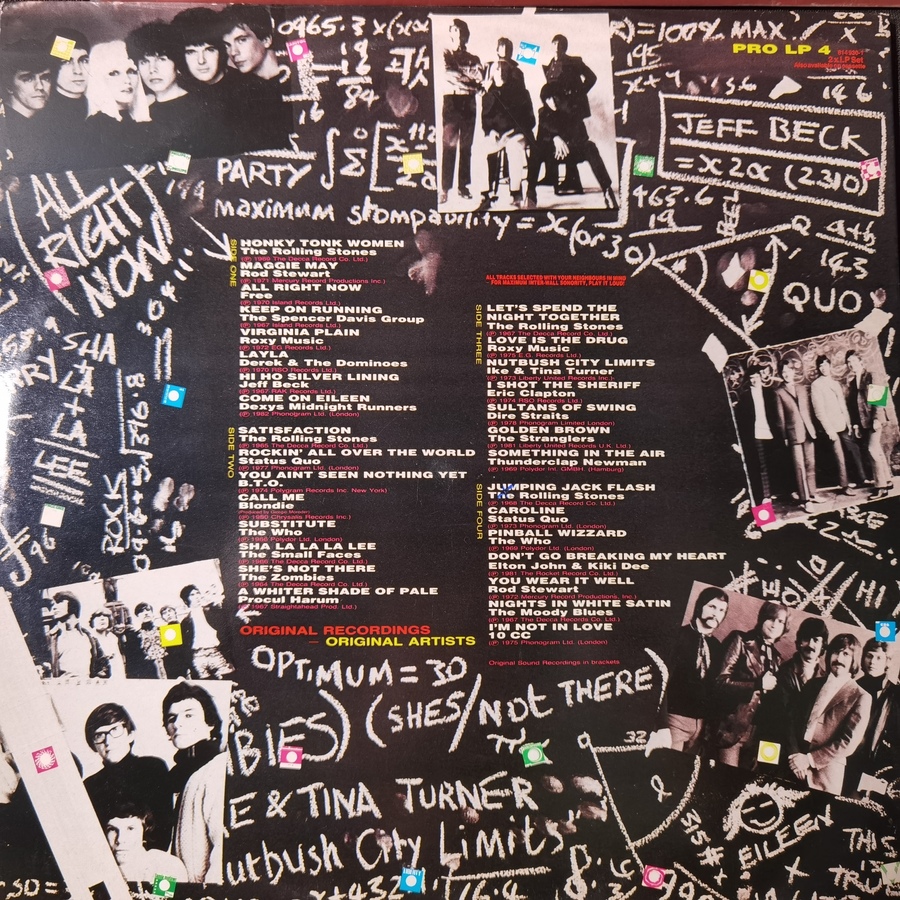 0965.3 x
= 100% MAX!
X
PRO LP 4
2 x LP Set
Also available on cassette
JEFF BECK
= x 2α (2310)
PARTY
maximum stompability = x (or 30)
463.6
19
ALL
RIGHT
NOW!
QUO
ROCK
SIDE ONE
HONKY TONK WOMEN
The Rolling Stones
(℗ 1969 The Decca Record Co. Ltd.)
MAGGIE MAY
Rod Stewart
(℗ 1971 Mercury Record Productions Inc.)
ALL RIGHT NOW
Free
(℗ 1970 Island Records Ltd.)
KEEP ON RUNNING
The Spencer Davis Group
(℗ 1967 Island Records Ltd.)
VIRGINIA PLAIN
Roxy Music
(℗ 1972 EG Records Ltd.)
LAYLA
Derek & The Dominoes
(℗ 1970 RSO Records Ltd.)
HI HO SILVER LINING
Jeff Beck
(℗ 1967 RAK Records Ltd.)
COME ON EILEEN
Dexys Midnight Runners
(℗ 1982 Phonogram Ltd. (London)
SIDE TWO
SATISFACTION
The Rolling Stones
(℗ 1965 The Decca Record Co. Ltd.)
ROCKIN' ALL OVER THE WORLD
Status Quo
(℗ 1977 Phonogram Ltd. (London)
YOU AINT SEEN NOTHING YET
B.T.O.
(℗ 1974 Polygram Records Inc. New York)
CALL ME
Blondie
(℗ 1980 Chrysalis Records Inc.)
SUBSTITUTE
The Who
(℗ 1966 Polydor Ltd. London)
SHA LA LA LA LEE
The Small Faces
(℗ 1966 The Decca Record Co. Ltd.)
SHE'S NOT THERE
The Zombies
(℗ 1964 The Decca Record Co. Ltd.)
A WHITER SHADE OF PALE
Procul Harum
(℗ 1967 Straightahead Prod. Ltd.)
ORIGINAL RECORDINGS
– ORIGINAL ARTISTS
ALL TRACKS SELECTED WITH YOUR NEIGHBOURS IN MIND
FOR MAXIMUM INTER-WALL SONORITY, PLAY IT LOUD!
SIDE THREE
LET'S SPEND THE
NIGHT TOGETHER
The Rolling Stones
(℗ 1967 The Decca Record Co. Ltd.)
LOVE IS THE DRUG
Roxy Music
(℗ 1975 E.G. Records Ltd.)
NUTBUSH CITY LIMITS
Ike & Tina Turner
(℗ 1973 Liberty United Records Inc.)
I SHOT THE SHERIFF
Eric Clapton
(℗ 1974 RSO Records Ltd.)
SULTANS OF SWING
Dire Straits
(℗ 1978 Phonogram Limited London)
GOLDEN BROWN
The Stranglers
(℗ 1981 Liberty United Records U.K. Ltd.)
SOMETHING IN THE AIR
Thunderclap Newman
(℗ 1969 Polydor Int. GMBH. (Hamburg)
SIDE FOUR
JUMPING JACK FLASH
The Rolling Stones
(℗ 1968 The Decca Record Co. Ltd.)
CAROLINE
Status Quo
(℗ 1973 Phonogram Ltd. (London)
PINBALL WIZZARD
The Who
(℗ 1969 Polydor Ltd. (London)
DON'T GO BREAKING MY HEART
Elton John & Kiki Dee
YOU WEAR IT WELL
Rod Stewart
(℗ 1972 Mercury Record Productions, Inc.)
NIGHTS IN WHITE SATIN
The Moody Blues
(℗ 1967 The Decca Record Co. Ltd.)
I'M NOT IN LOVE
10 CC
(℗ 1975 Phonogram Ltd. (London)
Original Sound Recordings in brackets
OPTIMUM = 30
BIES) (SHES/NOT THERE)
π
32
E & TINA TURNER
utbush City Limits"
EILEEN
THIS
X